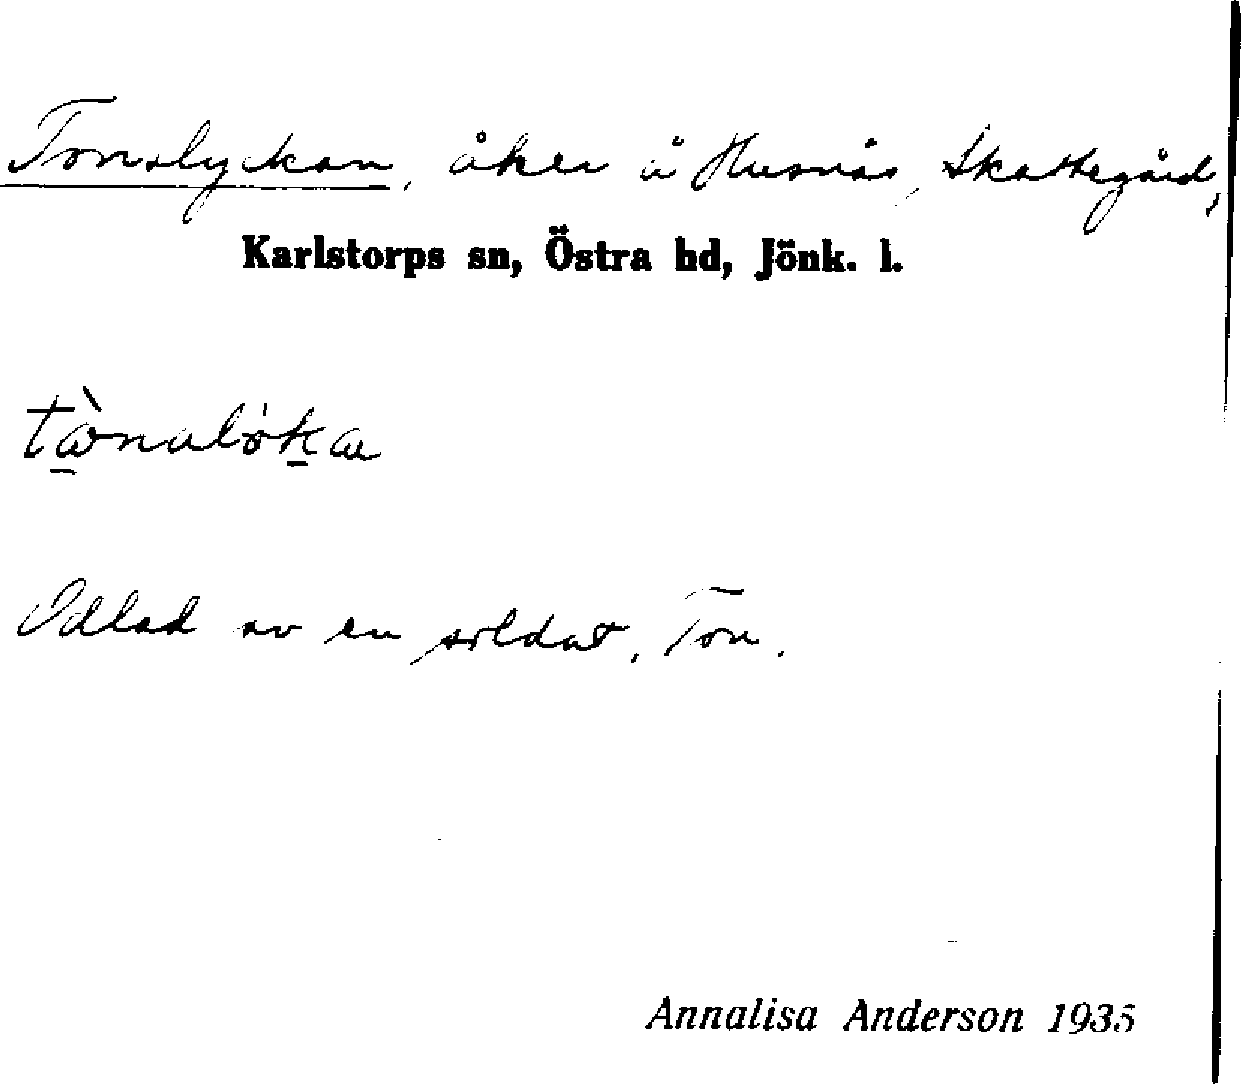 Tonslyckan, åker å Husnäs, Skattegård,
Karlstorps sn, Östra hd, Jönk. l.
Odlad av en soldat, Ton.
Annalisa Anderson 1935